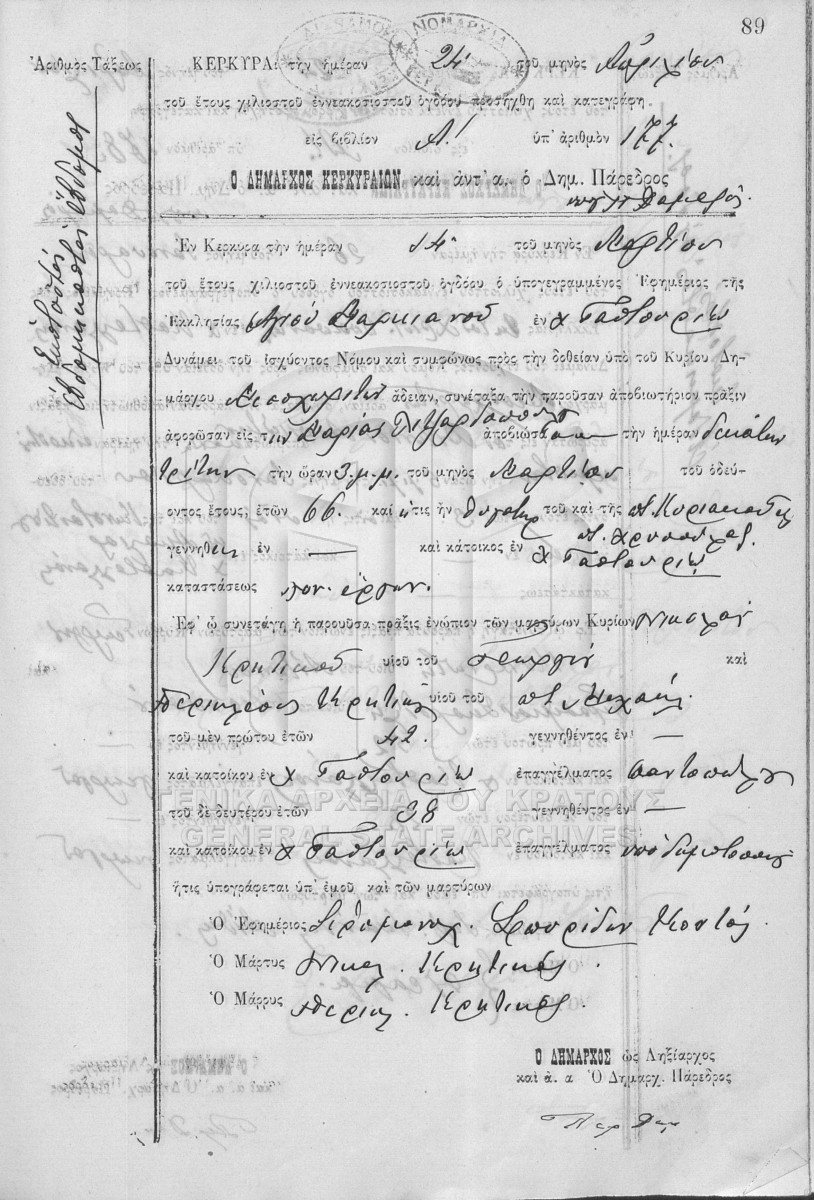 89
Ἀριθμὸς Τάξεως
ἑκατοστὸς
ἑβδομηκοστὸς ἕβδομος
ΚΕΡΚΥΡΑ: τὴν ἡμέραν 24 τοῦ μηνὸς Ἀπριλίου
τοῦ ἔτους χιλιοστοῦ ἐννεακοσιοστοῦ ὀγδόου προσήχθη καὶ κατεγράφη
εἰς βιβλίον Α! ὑπ' ἀριθμὸν 177.
Ο ΔΗΜΑΡΧΟΣ ΚΕΡΚΥΡΑΙΩΝ καὶ ἀντ' α. ὁ Δημ. Πάρεδρος
Ἐν Κερκύρᾳ τὴν ἡμέραν 14 τοῦ μηνὸς Μαρτίου
τοῦ ἔτους χιλιοστοῦ ἐννεακοσιοστοῦ ὀγδόου ὁ ὑπογεγραμμένος Ἐφημέριος τῆς
Ἐκκλησίας Ἁγίου Μαρκιανοῦ ἐν χ Γαστουρίῳ
Δυνάμει τοῦ ἰσχύοντος Νόμου καὶ συμφώνως πρὸς τὴν δοθεῖαν ὑπὸ τοῦ Κυρίου Δη-
μάρχου Μεσοχωριτῶν ἄδειαν, συνέταξα τὴν παροῦσαν ἀποβιωτήριον πρᾶξιν
ἀφορῶσαν εἰς τὴν Μαρίαν ἀποβιώσασαν τὴν ἡμέραν δεκάτην
τρίτην τὴν ὥραν 3 μ.μ. τοῦ μηνὸς Μαρτίου τοῦ ὁδεύ-
οντος ἔτους, ἐτῶν 66. καὶ ἥτις ἦν θυγάτηρ τοῦ καὶ τῆς π. Κυριακοῦ
π. Χρυσούλας
γεννηθεῖσα ἐν — καὶ κάτοικος ἐν χ Γαστουρίῳ
καταστάσεως
Ἐφ' ᾧ συνετάγη ἡ παροῦσα πρᾶξις ἐνώπιον τῶν μαρτύρων Κυρίων Νικολάου
Κρητικοῦ υἱοῦ τοῦ Γεωργίου καὶ
Περικλέους Κρητικοῦ υἱοῦ τοῦ π. Μιχαήλ.
τοῦ μὲν πρώτου ἐτῶν 42. γεννηθέντος ἐν —
καὶ κατοίκου ἐν χ Γαστουρίῳ ἐπαγγέλματος παντοπώλου
ΓΕΝΙΚΑ ΑΡΧΕΙΑ ΤΟΥ ΚΡΑΤΟΥΣ
τοῦ δὲ δευτέρου ἐτῶν 38 γεννηθέντος ἐν —
GENERAL STATE ARCHIVES
καὶ κατοίκου ἐν χ Γαστουρίῳ ἐπαγγέλματος ὑποδηματοποιοῦ
ἥτις ὑπογράφεται ὑπ' ἐμοῦ καὶ τῶν μαρτύρων
Ὁ Ἐφημέριος Ἱερομοναχ. Σπυρίδων Κοντός.
Ὁ Μάρτυς Νικολ. Κρητικός.
Ὁ Μάρρυς Περικλ. Κρητικός.
Ο ΔΗΜΑΡΧΟΣ ὡς Ληξίαρχος
καὶ ἀ. α Ὁ Δημαρχ. Πάρεδρος